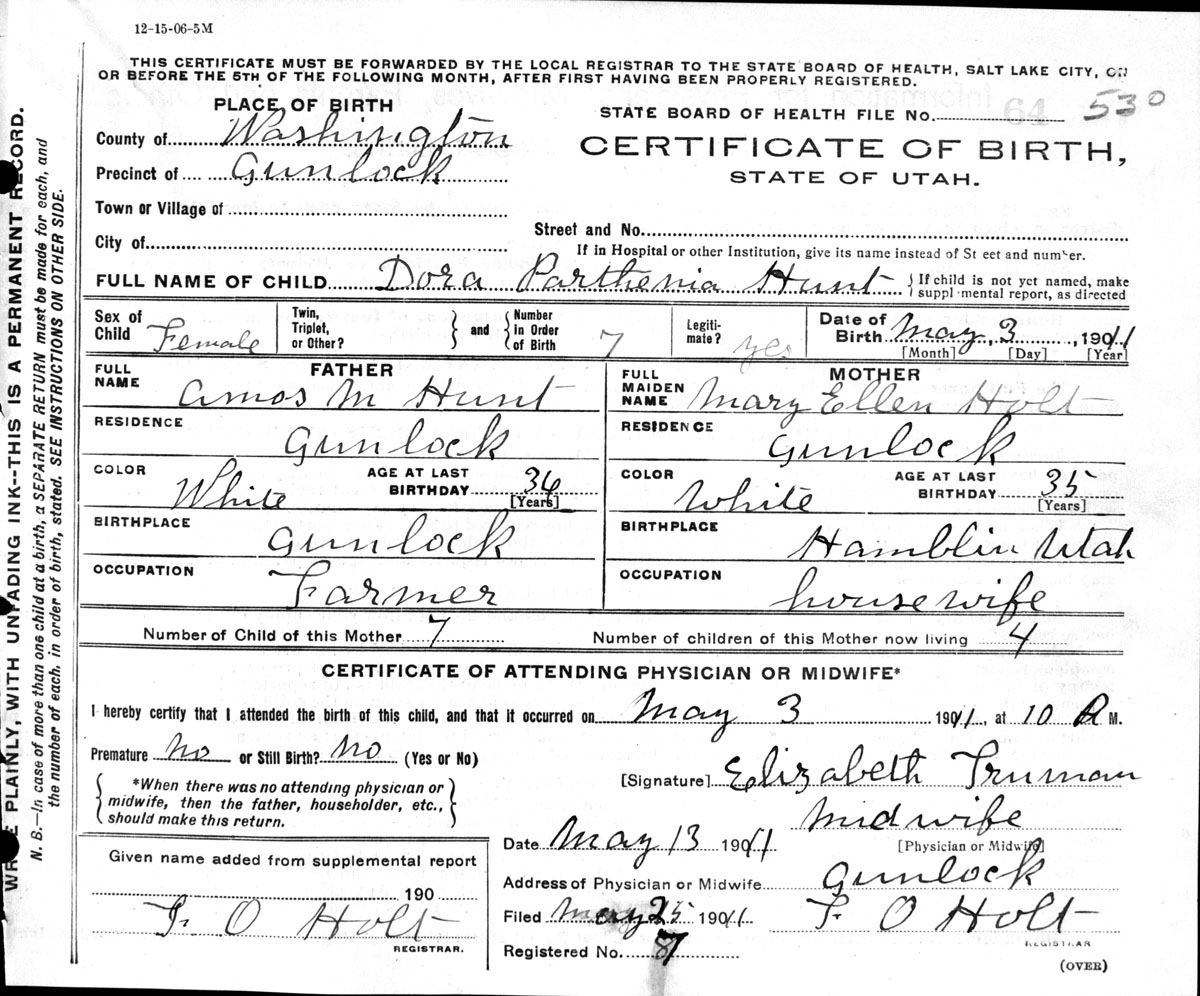 12-15-06-5M
THIS CERTIFICATE MUST BE FORWARDED BY THE LOCAL REGISTRAR TO THE STATE BOARD OF HEALTH, SALT LAKE CITY, ON
OR BEFORE THE 5TH OF THE FOLLOWING MONTH, AFTER FIRST HAVING BEEN PROPERLY REGISTERED.
WRITE PLAINLY, WITH UNFADING INK--THIS IS A PERMANENT RECORD.
N. B.—In case of more than one child at a birth, a SEPARATE RETURN must be made for each, and
the number of each, in order of birth, stated. SEE INSTRUCTIONS ON OTHER SIDE.
PLACE OF BIRTH
County of Washington
Precinct of Gunlock
Town or Village of
City of
STATE BOARD OF HEALTH FILE No. 64 530
CERTIFICATE OF BIRTH,
STATE OF UTAH.
Street and No.
If in Hospital or other Institution, give its name instead of St eet and number.
FULL NAME OF CHILD Dora Parthenia Hunt {If child is not yet named, make
suppl mental report, as directed
Sex of Child Female
Twin, Triplet, or Other? } and { Number in Order of Birth 7
Legiti- mate? yes
Date of Birth May 3, 1911
[Month] [Day] [Year]
FATHER
FULL NAME Amos M Hunt
RESIDENCE Gunlock
COLOR White AGE AT LAST BIRTHDAY 36 [Years]
BIRTHPLACE Gunlock
OCCUPATION Farmer
MOTHER
FULL MAIDEN NAME Mary Ellen Holt
RESIDENCE Gunlock
COLOR White AGE AT LAST BIRTHDAY 35 [Years]
BIRTHPLACE Hamblin Utah
OCCUPATION housewife
Number of Child of this Mother 7 Number of children of this Mother now living 4
CERTIFICATE OF ATTENDING PHYSICIAN OR MIDWIFE*
I hereby certify that I attended the birth of this child, and that it occurred on May 3 1911, at 10 A M.
Premature No or Still Birth? No (Yes or No)
{ *When there was no attending physician or
midwife, then the father, householder, etc.,
should make this return. }
[Signature] Elizabeth Truman
midwife
[Physician or Midwife]
Date May 13 1911
Address of Physician or Midwife Gunlock
Filed May 25 1911 F O Holt
REGISTRAR
Registered No. 7
(OVER)
Given name added from supplemental report
190
F O Holt
REGISTRAR.